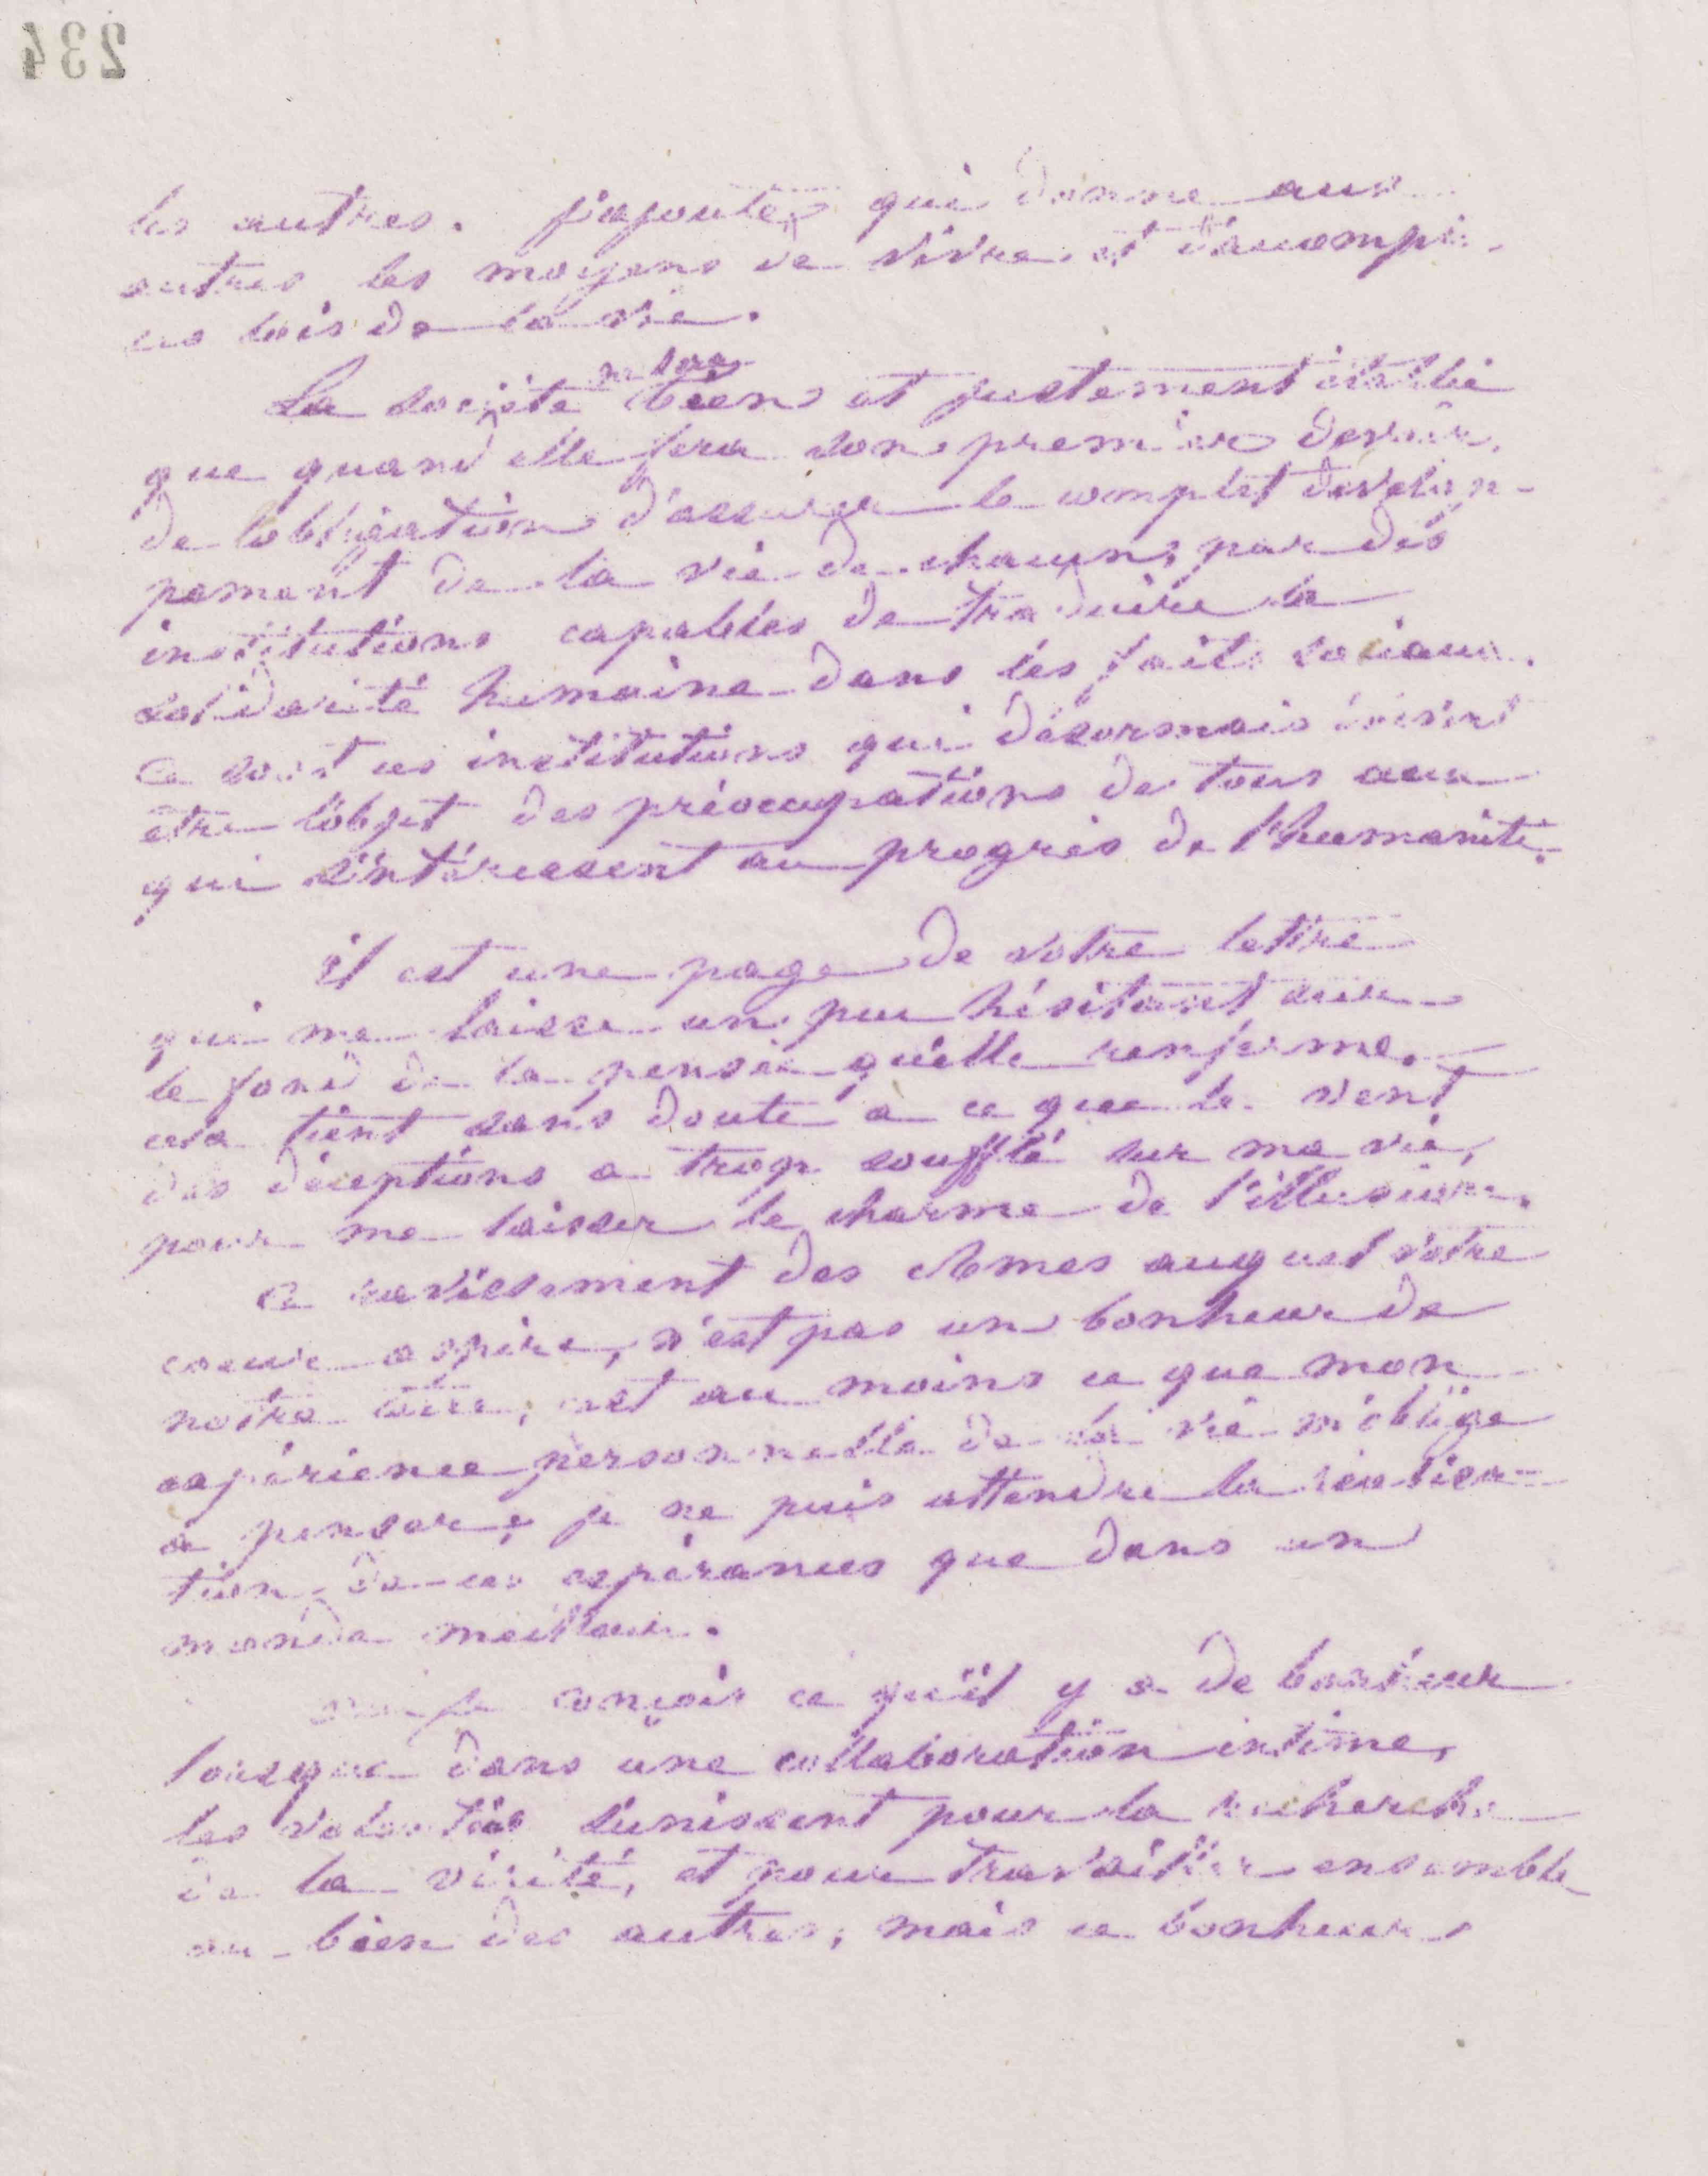 234
les autres. j'ajoute, qui donne aux
autres les moyens de vivre et d'accomplir
les lois de la vie.
La société ne sera bien et justement établie
que quand elle fera son premier devoir
de l'obligation d'assurer le complet dévelop-
pement de la vie de chacun, par des
institutions capables de traduire la
solidarité humaine dans les faits sociaux.
Ce sont ces institutions qui désormais doivent
être l'objet des préoccupations de tous ceux
qui s'intéressent au progrès de l'humanité.
il est une page de votre lettre
qui me laisse un peu hésitant sur
le fond de la pensée qu'elle renferme.
cela tient sans doute a ce que le vent
des déceptions a trop soufflé sur ma vie,
pour me laisser le charme de l'illusion.
Ce ravissement des Ames auquel votre
coeur aspire, n'est pas un bonheur de
notre terre, c'est au moins ce que mon
expérience personnelle de la vie m'oblige
a penser; je ne puis attendre la réalisa-
tion de ces espérances que dans un
monde meilleur.
oui je conçois ce qu'il y a de bonheur
lorsque dans une collaboration intime,
les volontés s'unissent pour la recherche
de la vérité, et pour travailler ensemble
au bien des autres; mais ce bonheur